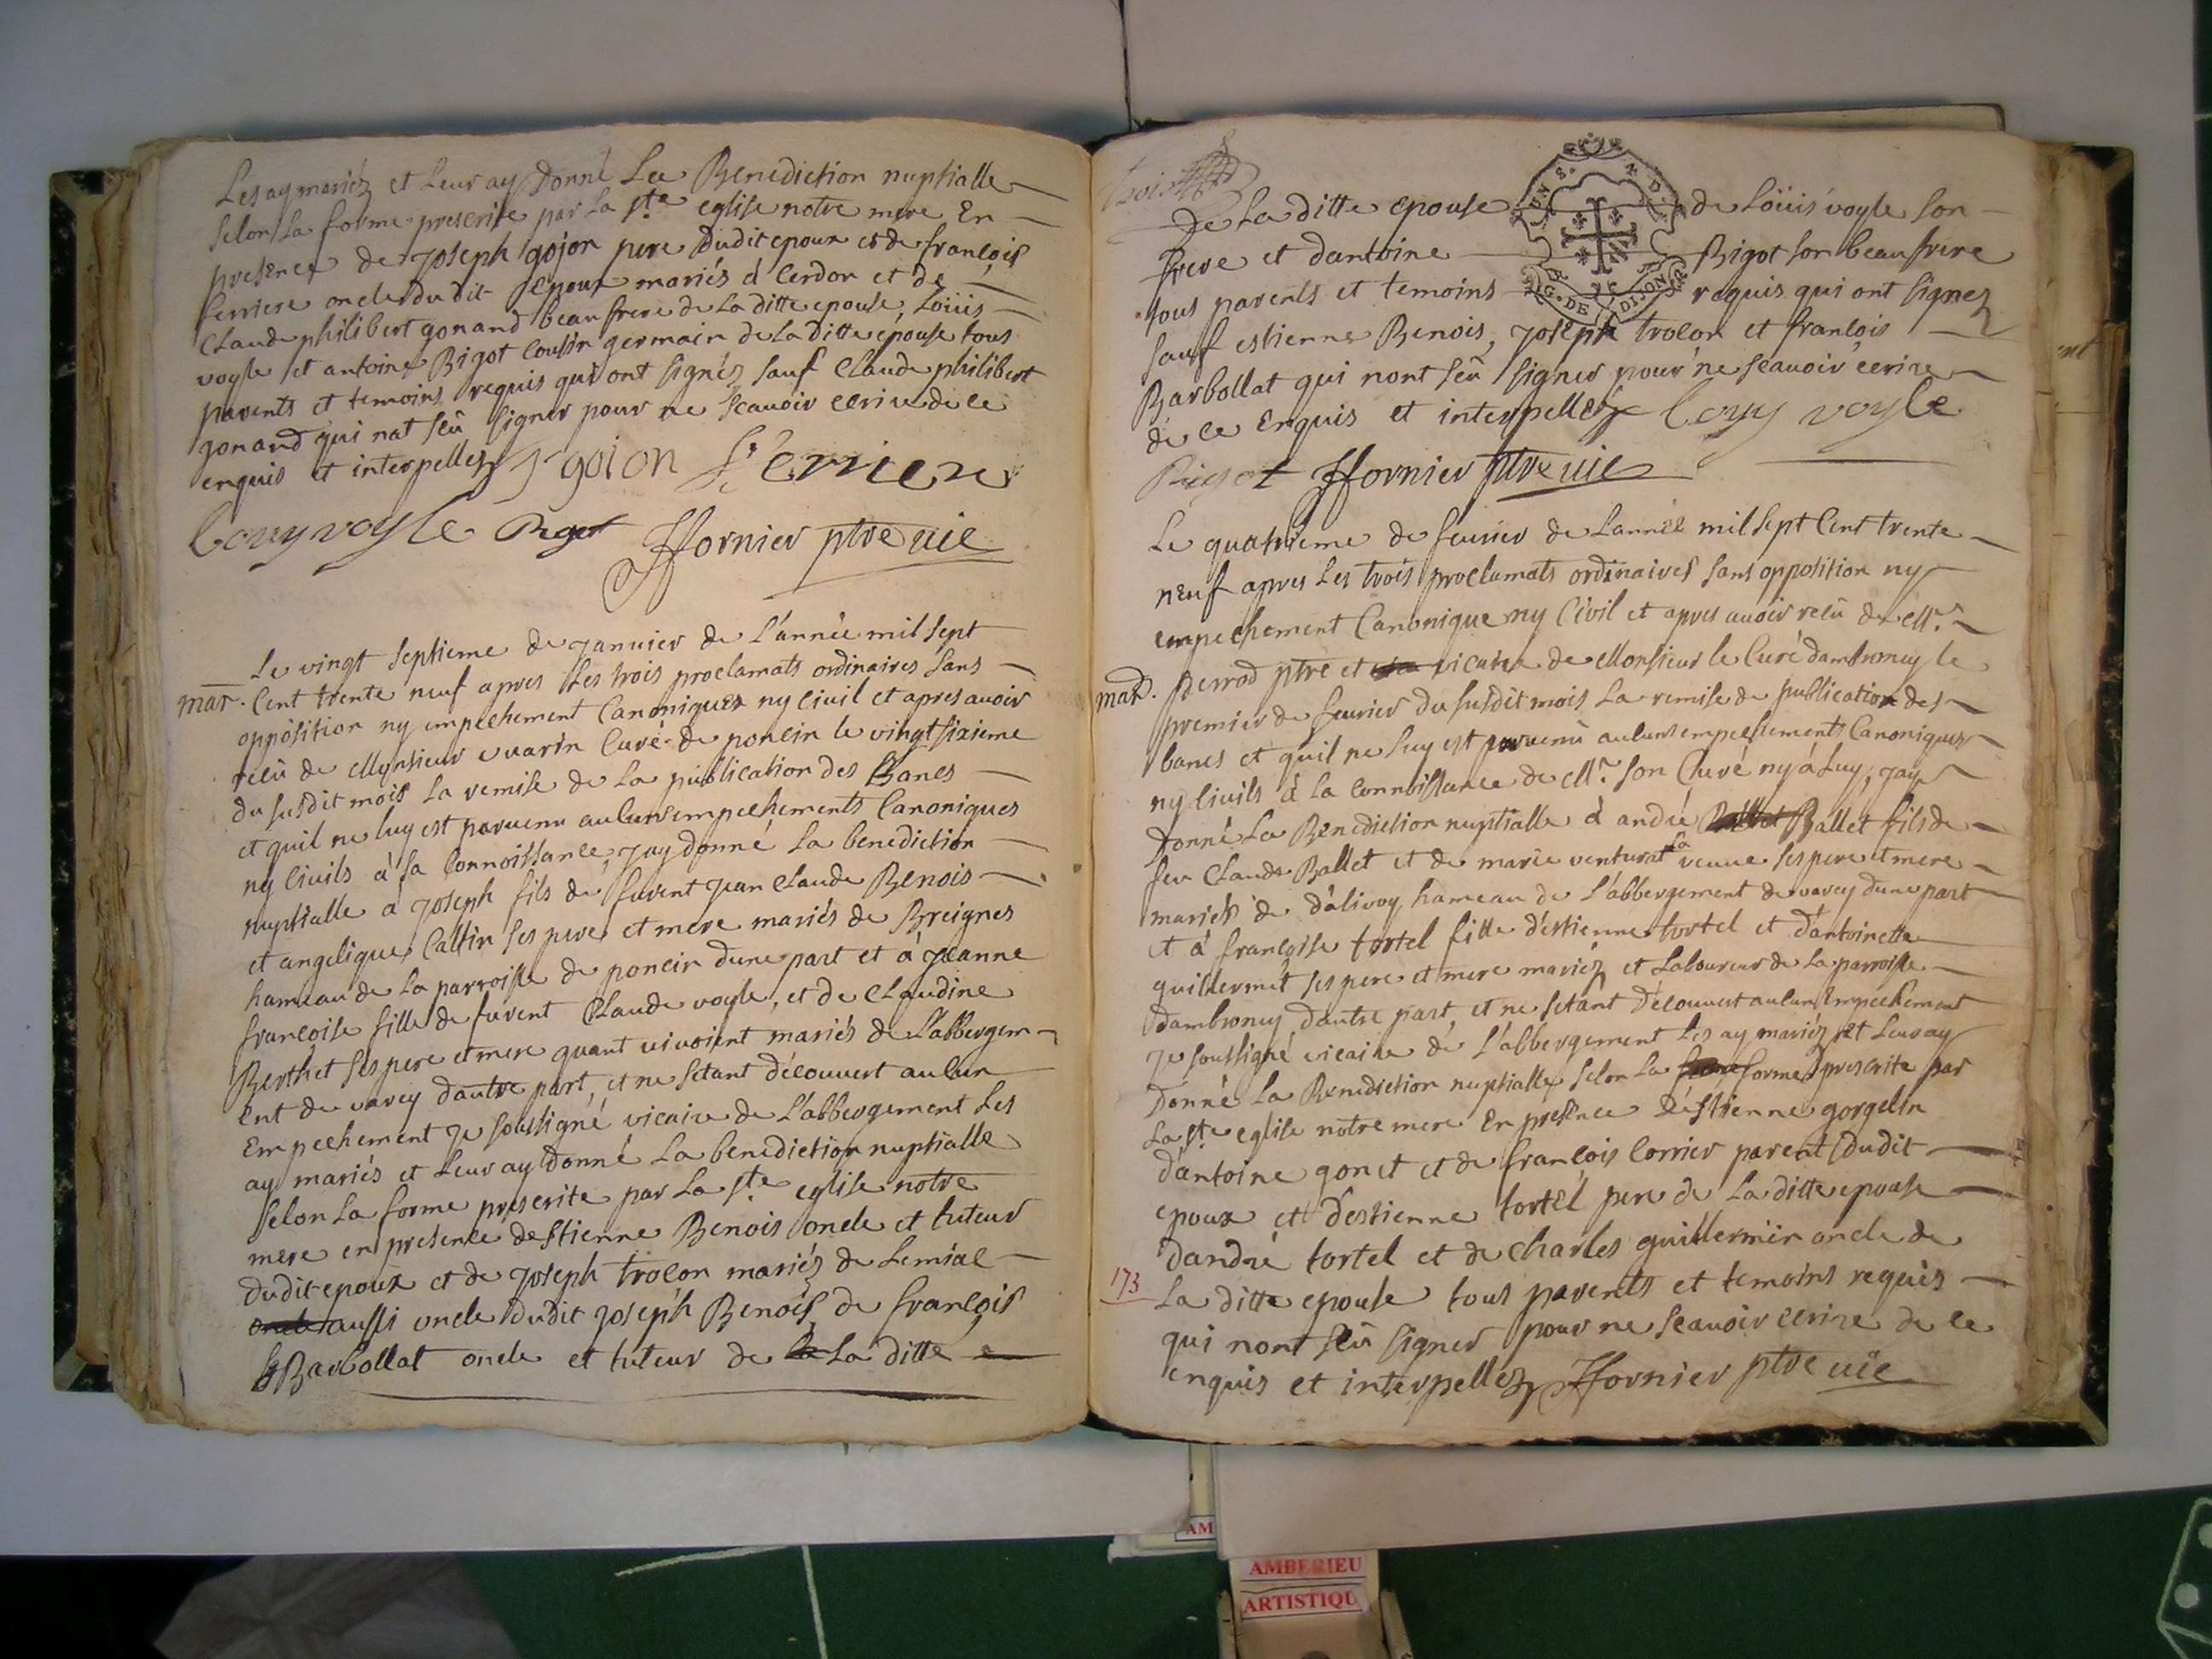 Les ay mariéz et leur ay donné La Benediction nuptialle
selon la forme prescrite par la ste eglise notre mere En
presence de joseph gojon pere dudit epoux et de françois
ferriere oncle du dit Epoux mariés à Cerdon et de
Claude philibert gonand beau frere de la ditte epouse, Loüis
voyle et antoine Bigot Cousin germain de la ditte epouse tous
parents et temoins requis qui ont signés sauf Claude philibert
gonand qui nat sçû signer pour ne sçavoir ecrire de ce
enquis et interpellez J goion Ferriere
Louy voysle Bigot Hornier ptre vic
Le vingt septieme de janvier de l'année mil sept
mar. Cent trente neuf apres Les trois proclamats ordinaires sans
oppósition ny empechement Canoniques ny Civil et apres avoir
reçû de Monsieur evarin Curé de poncin le vingt sixieme
du susdit mois la remise de la publication des Bancs
et quil ne luy est parvenu aulcuns empechements Canoniques
ny Civils à sa Connoissance, jay donné la benediction
nuptialle à joseph fils de furent jean claude Benois
et angelique Caltin ses pere et mere mariés de Breignes
hameau de la parroisse de poncin dune part et à jeanne
françoise fille de furent Claude voyle, et de Claudine
Berthet ses pere et mere quant vivoient mariés de L'abbergem-
ent de varey dautre part, et ne setant découvert aulcun
Empechement je soussigné vicaire de L'abbergement Les
ay mariés et leur ay donné la benediction nuptialle
selon la forme prescrite par la ste eglise notre
mere en presence destienne Benois oncle et tuteur
dudit epoux et de joseph trocon mariéz de Lemiae
oncle aussi oncle dudit joseph Benois, de françois
Barbollat oncle et tuteur de la La ditte
trois
de la ditte epouse de Loüis voyle son
frere et dantoine Bigot son beau frere
tous parents et temoins requis qui ont signez
sauf estienne Benois, joseph trocon et françois
Barbollat qui nont sçû signer pour ne sçavoir ecrire
de ce enquis et interpellez Louy voyle
Bigot Hornier ptre vic
G. DE DIJON
Le quatrieme de fevrier de Lannée mil sept Cent trente
neuf apres Les trois proclamats ordinaires sans opposition ny
empechement Canonique ny Civil et apres avoir reçû de Mr.
mar. perrod ptre et vicaire de Monsieur le Curé dambronay le
premier de fevrier du susdit mois la remise de publication des
bancs et quil ne luy est parvenù aulcuns empechements Canoniques
ny Civils à la connoissance de Mr. son Curé ny à luy, jay
donné la Benediction nuptialle à andré Ballet fils de
feu Claude Ballet et de marie venturat la veuve ses pere et mere
mariés de dalivoy hameau de L'abbergement de varey dune part
et à françoise tortel fille d'estienne tortel et d'antoinette
guillermet ses pere et mere mariéz et Laboureur de la parroisse
dambronay dautre part, et ne setant découvert aulcun Empechement
je soussigné vicaire de L'abbergement les ay mariéz et leur ay
donné la Benediction nuptialle selon la forme prescrite par
la ste eglise notre mere En presence d'estienne gorgelin
d'antoine gonet et de françois Corrier parent dudit
epoux et destienne tortel pere de la ditte epouse
dandré tortel et de Charles guillermin oncle de
173 la ditte epouse tous parents et temoins requis
qui nont sçû signer pour ne sçavoir ecrire de ce
enquis et interpellez Hornier ptre vic
AM
AMBERIEU
ARTISTIQU